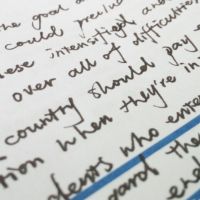 the good a
could preclu
these intensified and
over all of difficulties
country should pay
tion when they're in
dents who ente
gard the